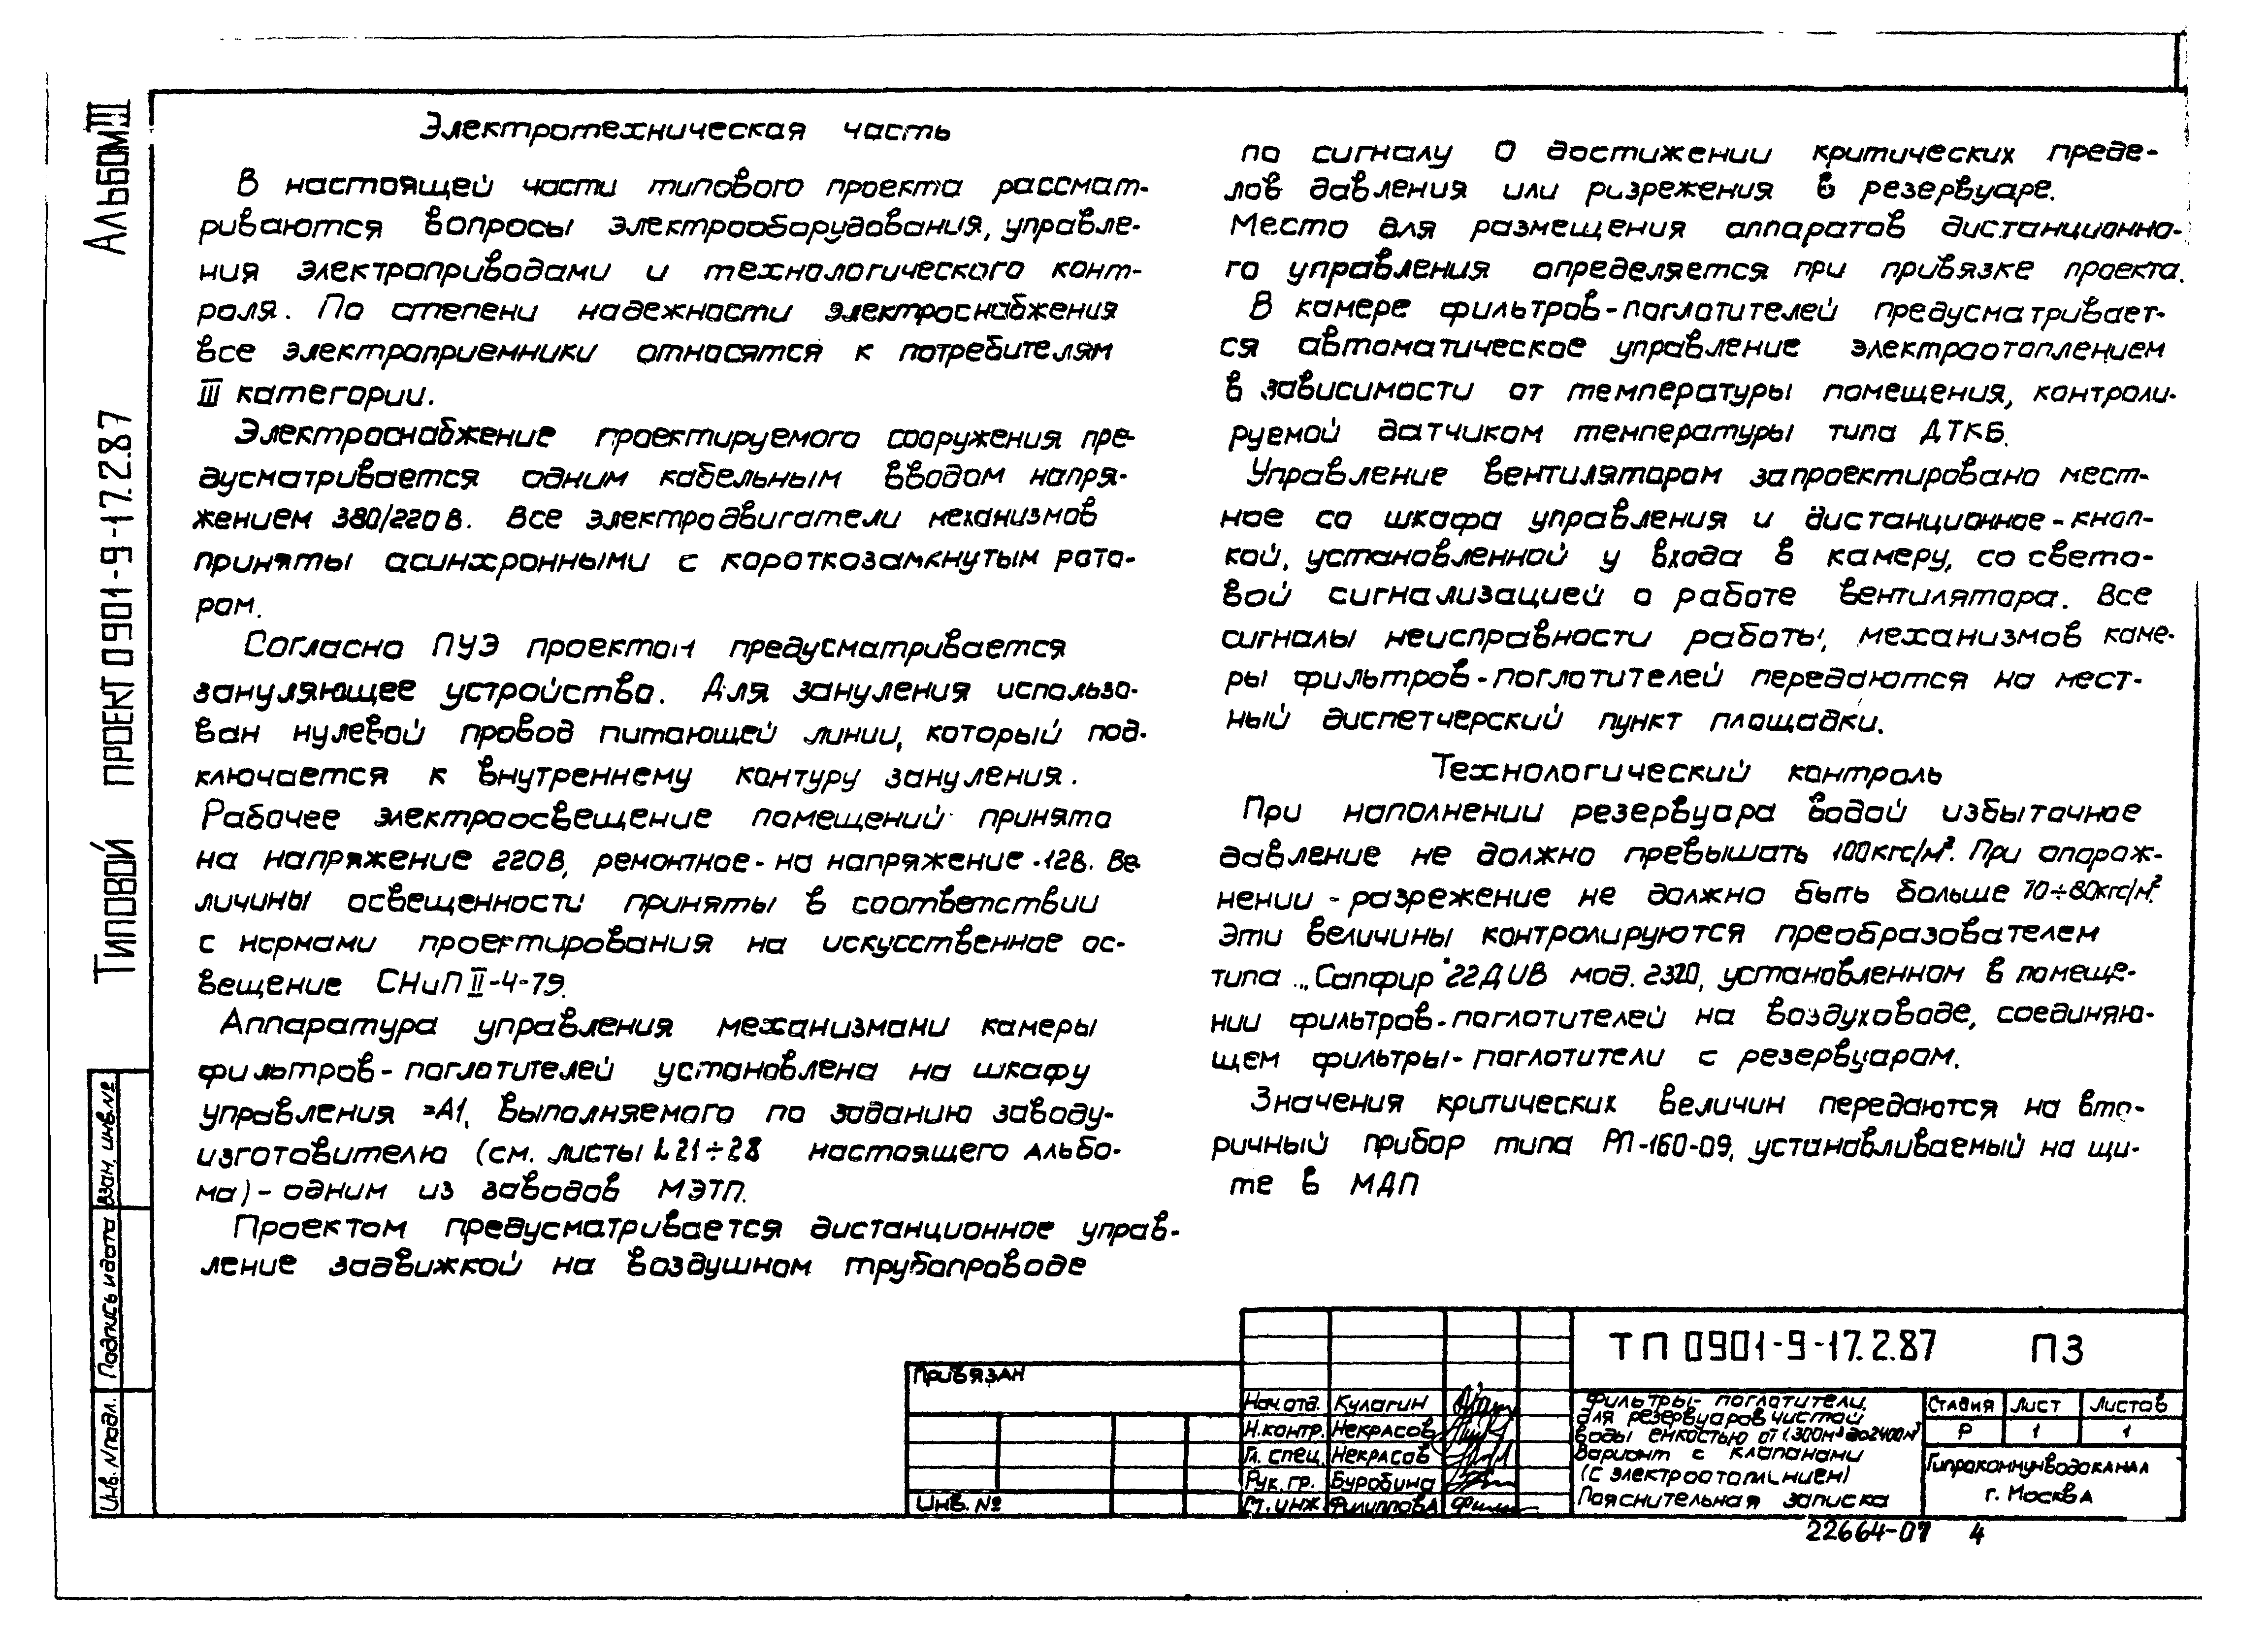 Альбом III
Типовой проект 0901-9-17.2.87
Электротехническая часть
В настоящей части типового проекта рассмат-
риваются вопросы электрооборудования, управле-
ния электроприводами и технологического конт-
роля. По степени надежности электроснабжения
все электроприемники относятся к потребителям
III категории.
Электроснабжение проектируемого сооружения пре-
дусматривается одним кабельным вводом напря-
жением 380/220 в. Все электродвигатели механизмов
приняты асинхронными с короткозамкнутым рото-
ром.
Согласно ПУЭ проектом предусматривается
зануляющее устройство. Для зануления использо-
ван нулевой провод питающей линии, который под-
ключается к внутреннему контуру зануления.
Рабочее электроосвещение помещений принято
на напряжение 220В, ремонтное - на напряжение -12в. Ве-
личины освещенности приняты в соответствии
с нормами проектирования на искусственное ос-
вещение СНиП II-4-79.
Аппаратура управления механизмами камеры
фильтров-поглотителей установлена на шкафу
управления =А1, выполняемого по заданию заводу-
изготовителю (см. листы 21÷28 настоящего Альбо-
ма) - одним из заводов МЭТП.
Проектом предусматривается дистанционное управ-
ление задвижкой на воздушном трубопроводе
по сигналу о достижении критических преде-
лов давления или ризрежения в резервуаре.
Место для размещения аппаратов дистанционно-
го управления определяется при привязке проекта.
В камере фильтров-поглотителей предусматривает-
ся автоматическое управление электроотоплением
в зависимости от температуры помещения, контроли-
руемой датчиком температуры типа ДТКБ.
Управление вентилятором запроектировано мест-
ное со шкафа управления и дистанционное - кноп-
кой, установленной у входа в камеру, со свето-
вой сигнализацией о работе вентилятора. Все
сигналы неисправности работы, механизмов каме-
ры фильтров-поглотителей передаются на мест-
ный диспетчерский пункт площадки.
Технологический контроль
При наполнении резервуара водой избыточное
давление не должно превышать 100кгс/м². При опорож-
нении - разрежение не должно быть больше 70÷80кгс/м²
Эти величины контролируются преобразователем
типа „Сапфир"22ДИВ мод. 2320, установленном в помеще-
нии фильтров-поглотителей на воздуховоде, соединяю-
щем фильтры-поглотители с резервуаром.
Значения критических величин передаются на вто-
ричный прибор типа РП-160-09, устанавливаемый на щи-
те в МДП
Взам. инв. №
Подпись и дата
Инв. № подл.
Привязан
Инв. №
Нач. отд. Кулагин
Н. контр. Некрасов
Гл. спец. Некрасов
Рук. гр. Буробина
Ст. инж. Филиппова
ТП 0901-9-17.2.87 ПЗ
Фильтры-поглотители
для резервуаров чистой
воды емкостью от 1.300м³ до 2400м³
Вариант с клапанами
(с электроотоплением)
Пояснительная записка
Стадия Лист Листов
Р 1 1
Гипрокоммунводоканал
г. Москва
22664-07 4